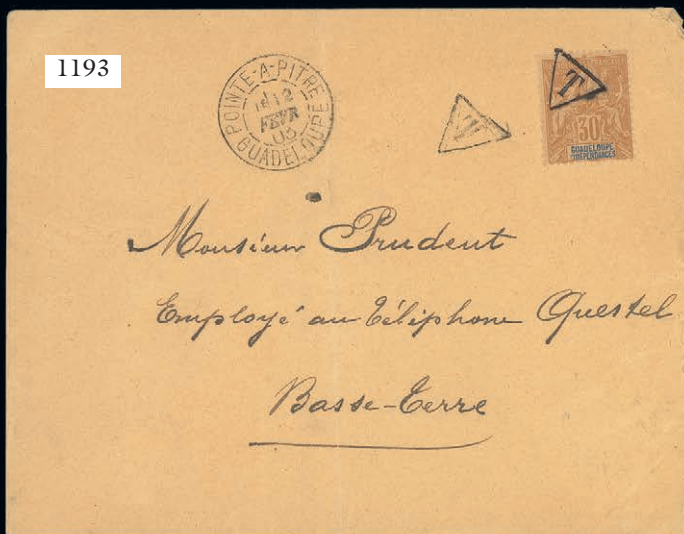 1193
POINTE-A-PITRE
12
FEVR
03
GUADELOUPE
T
T
30
GUADELOUPE
ET DÉPENDANCES
Monsieur Prudent
Employé au Téléphone Questel
Basse-Terre